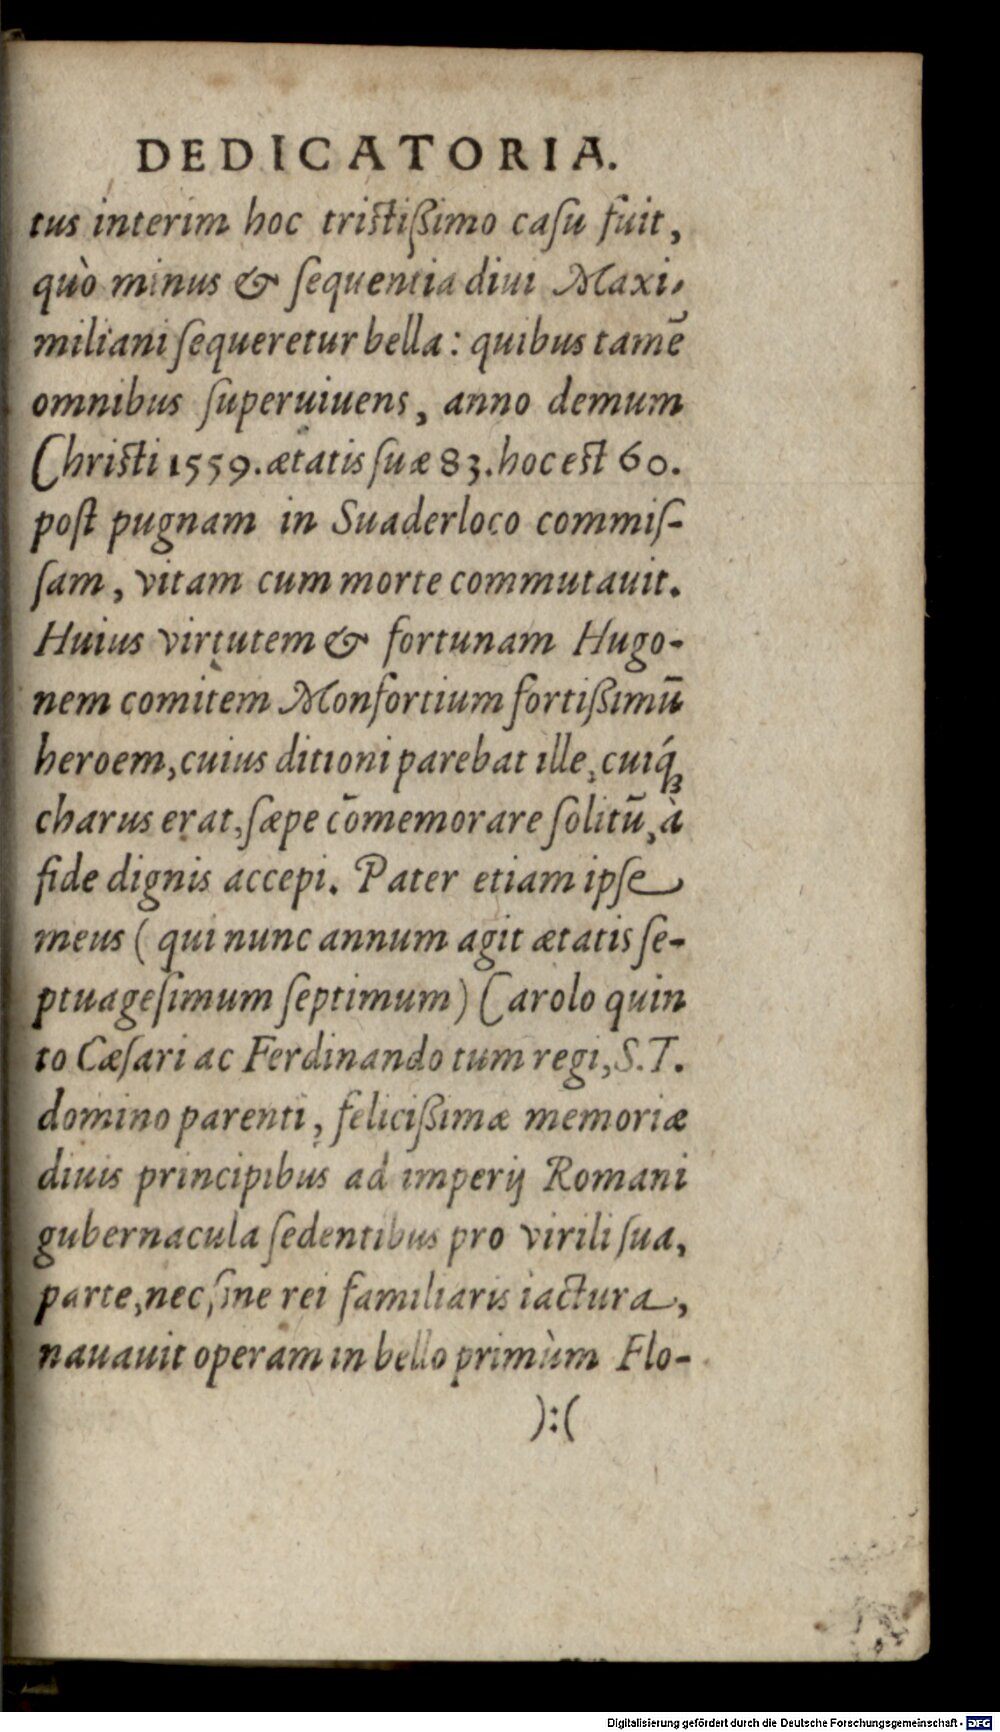 DEDICATORIA.
tus interim hoc tristißimo caſu fuit,
quò minus & ſequentia diui Maxi-
miliani ſequeretur bella: quibus tamē
omnibus ſuperuiuens, anno demum
Christi 1559. ætatis ſuæ 83. hoc est 60.
poſt pugnam in Suaderloco commiſ-
ſam, vitam cum morte commutauit.
Huius virtutem & fortunam Hugo-
nem comitem Monfortium fortißimū
heroem, cuius ditioni parebat ille, cuiq́;
charus erat, ſæpe cōmemorare ſolitū, à
fide dignis accepi. Pater etiam ipſe
meus (qui nunc annum agit ætatis ſe-
ptuageſimum ſeptimum) Carolo quin
to Cæſari ac Ferdinando tum regi, S.T.
domino parenti, felicißimæ memoriæ
diuis principibus ad imperij Romani
gubernacula ſedentibus pro virili ſua,
parte, nec ſine rei familiaris iactura,
nauauit operam in bello primùm Flo-
):(
Digitalisierung gefördert durch die Deutsche Forschungsgemeinschaft - DFG